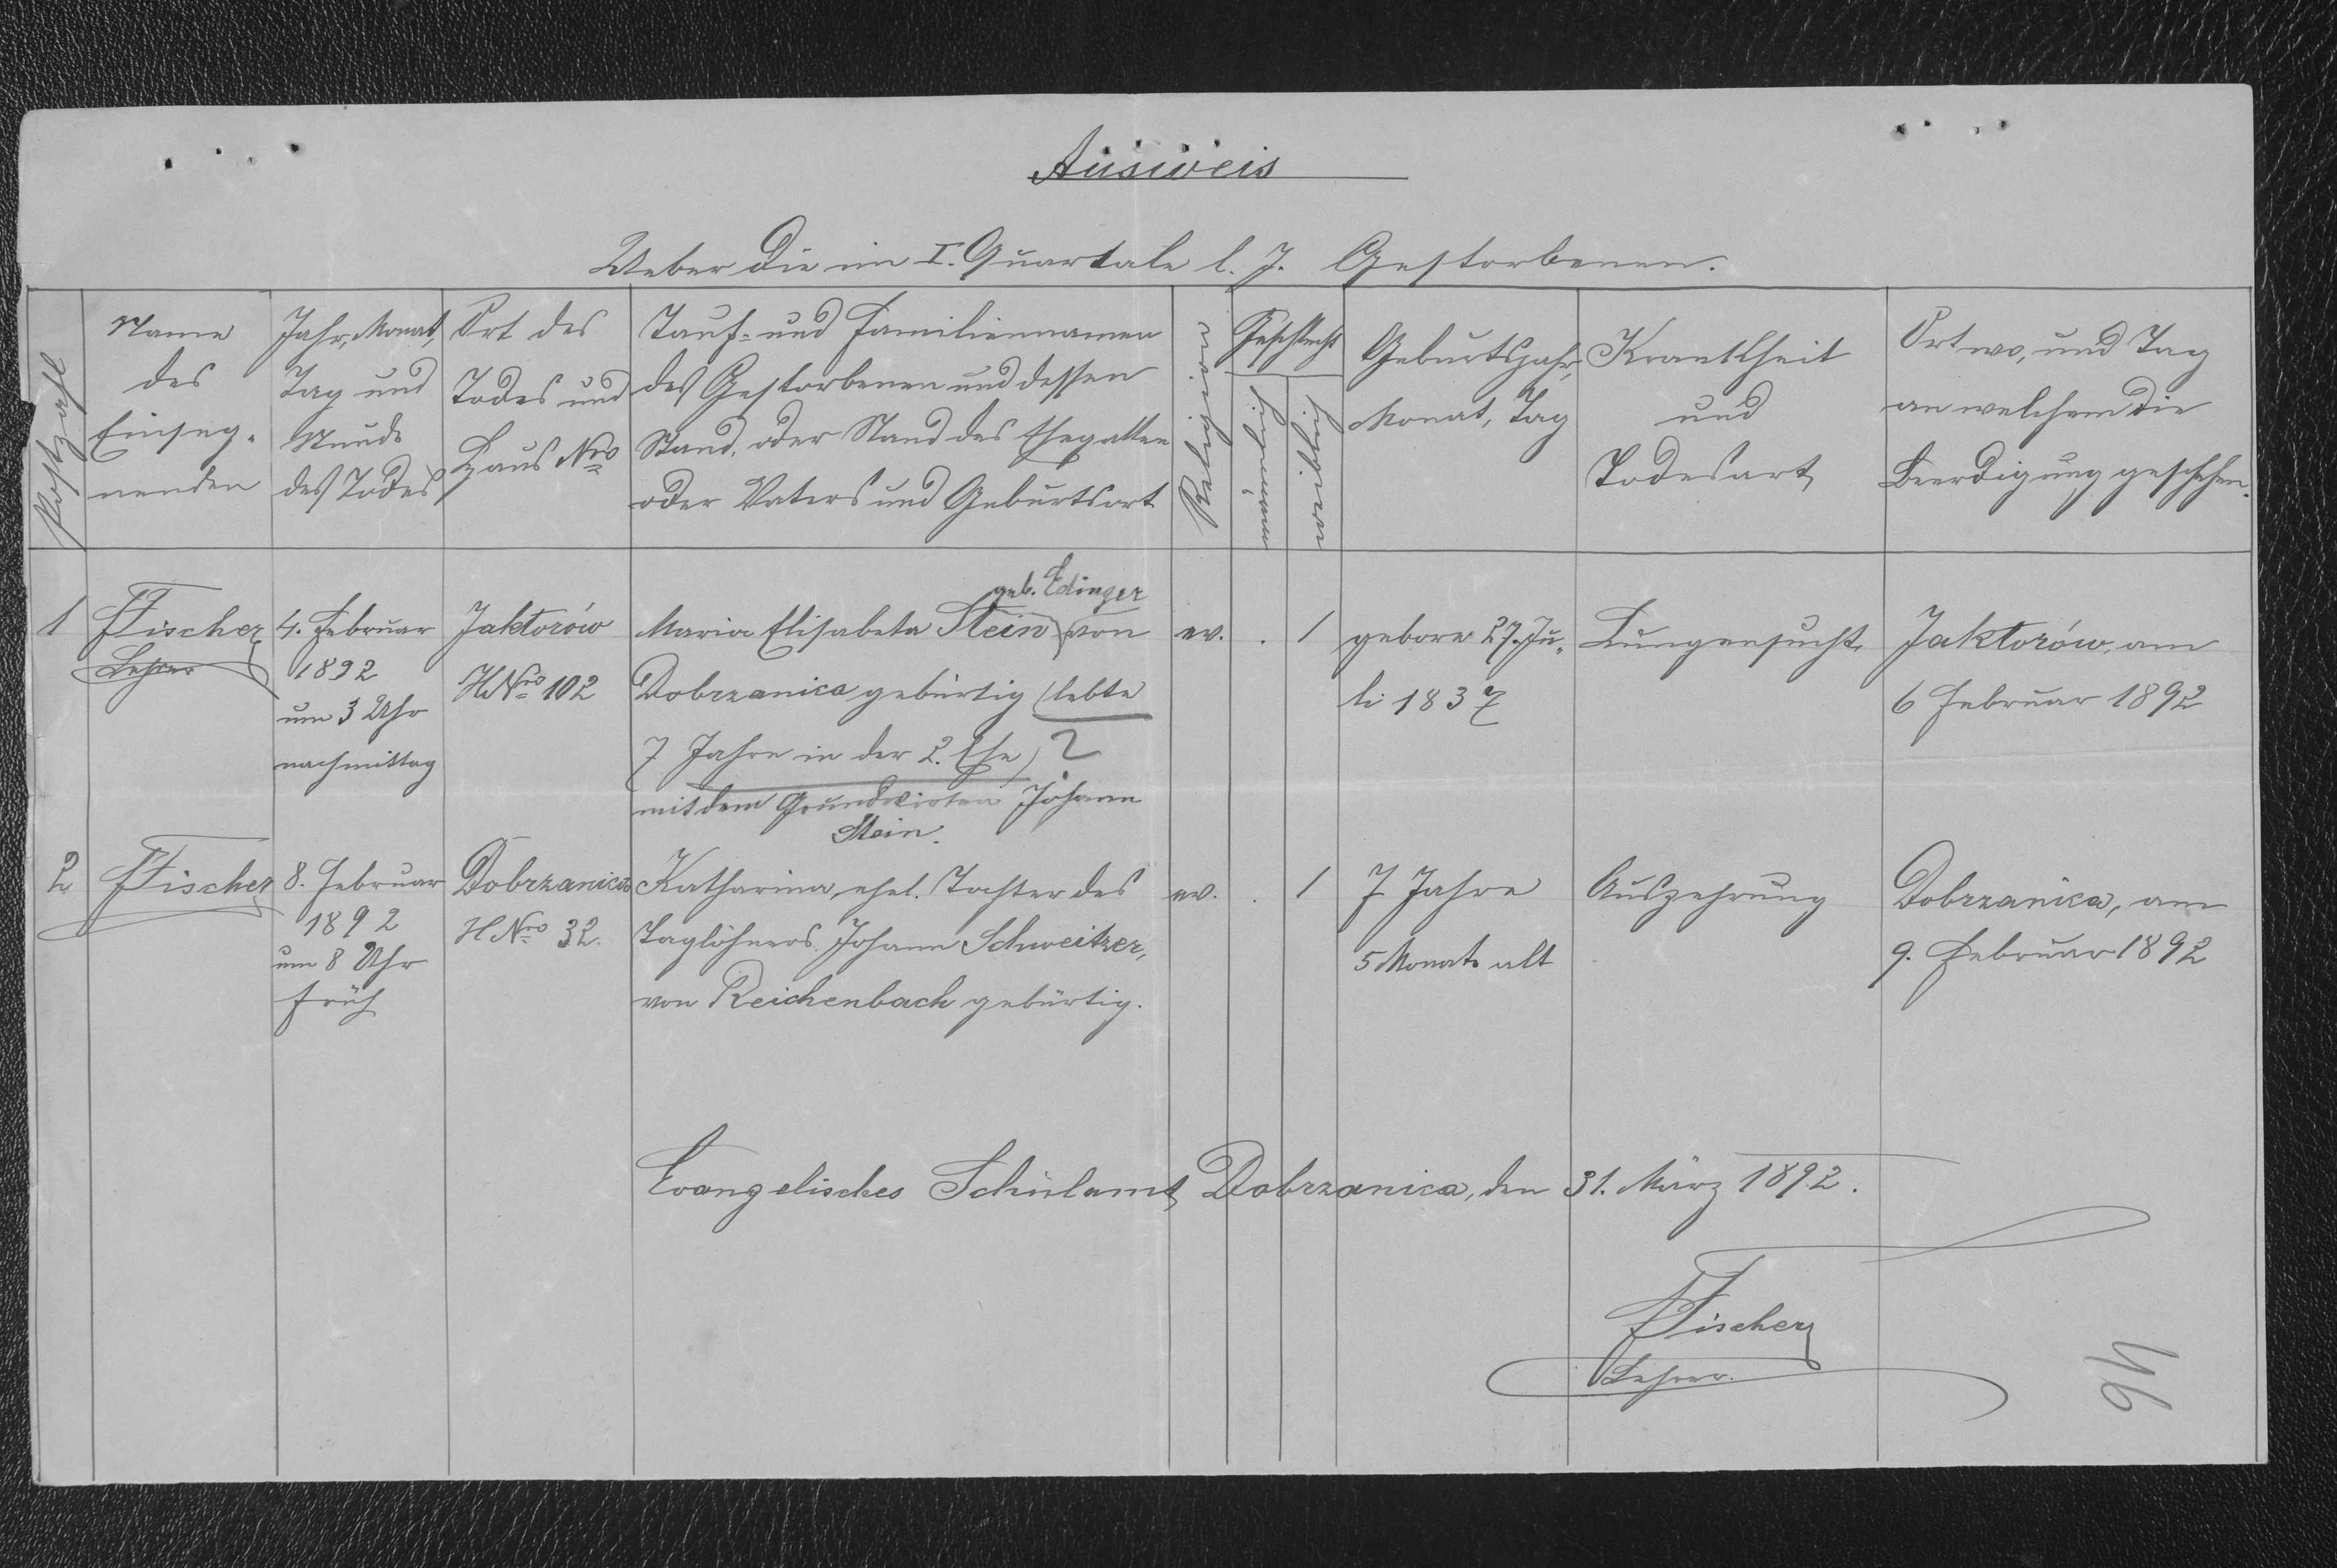 Ausweis
Ueber die im I. Quartale l. J. Gestorbenen.
Postzahl
Name
des
Einseg-
nenden
Jahr, Monat,
Tag und
Stunde
des Todes
Ort des
Todes und
Haus Nro
Tauf- und Familiennamen
des Gestorbenen und dessen
Stand, oder Stand des Ehegatten
oder Vaters und Geburtsort
Religion
Geschlecht
männlich
weiblich
Geburtsjahr,
Monat, Tag
Krankheit
und
Todesart
Ort wo, und Tag
an welchem die
Beerdigung geschehen.
1
Fischer
Lehrer
4. Februar
1892
um 3 Uhr
nachmittag
Jaktorów
HNro 102
geb. Edinger
Maria Elisabeta Stein von
Dobrzanica gebürtig (lebte
7 Jahre in der 2. Ehe) ?
mit dem Grundwirten Johann
Stein.
ev. . 1
geboren 27. Ju-
li 1837
Lungensucht
Jaktorów, am
6 Februar 1892
2
Fischer
8. Februar
1892
um 8 Uhr
früh
Dobrzanica
HNro 32.
Katharina, ehel. Tochter des
Taglöhners Johann Schweitzer,
von Reichenbach gebürtig.
ev. . 1
7 Jahre
5 Monate alt
Auszehrung
Dobrzanica, am
9. Februar 1892
Evangelisches Schulamt Dobrzanica, den 31. März 1892.
Fischer
Lehrer.